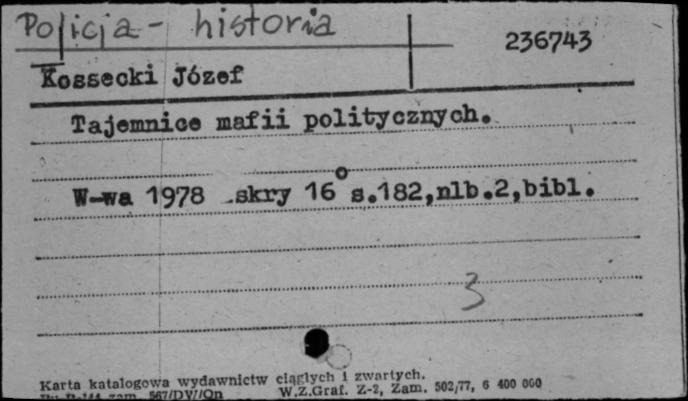 Policja - historia
236743
Kossecki Józef
Tajemnice mafii politycznych.
W-wa 1978 skry 16° s.182,nlb.2,bibl.
3
Karta katalogowa wydawnictw ciągłych i zwartych.
567/DV//Qn W.Z.Graf. Z-2, Zam. 502/77, 6 400 000